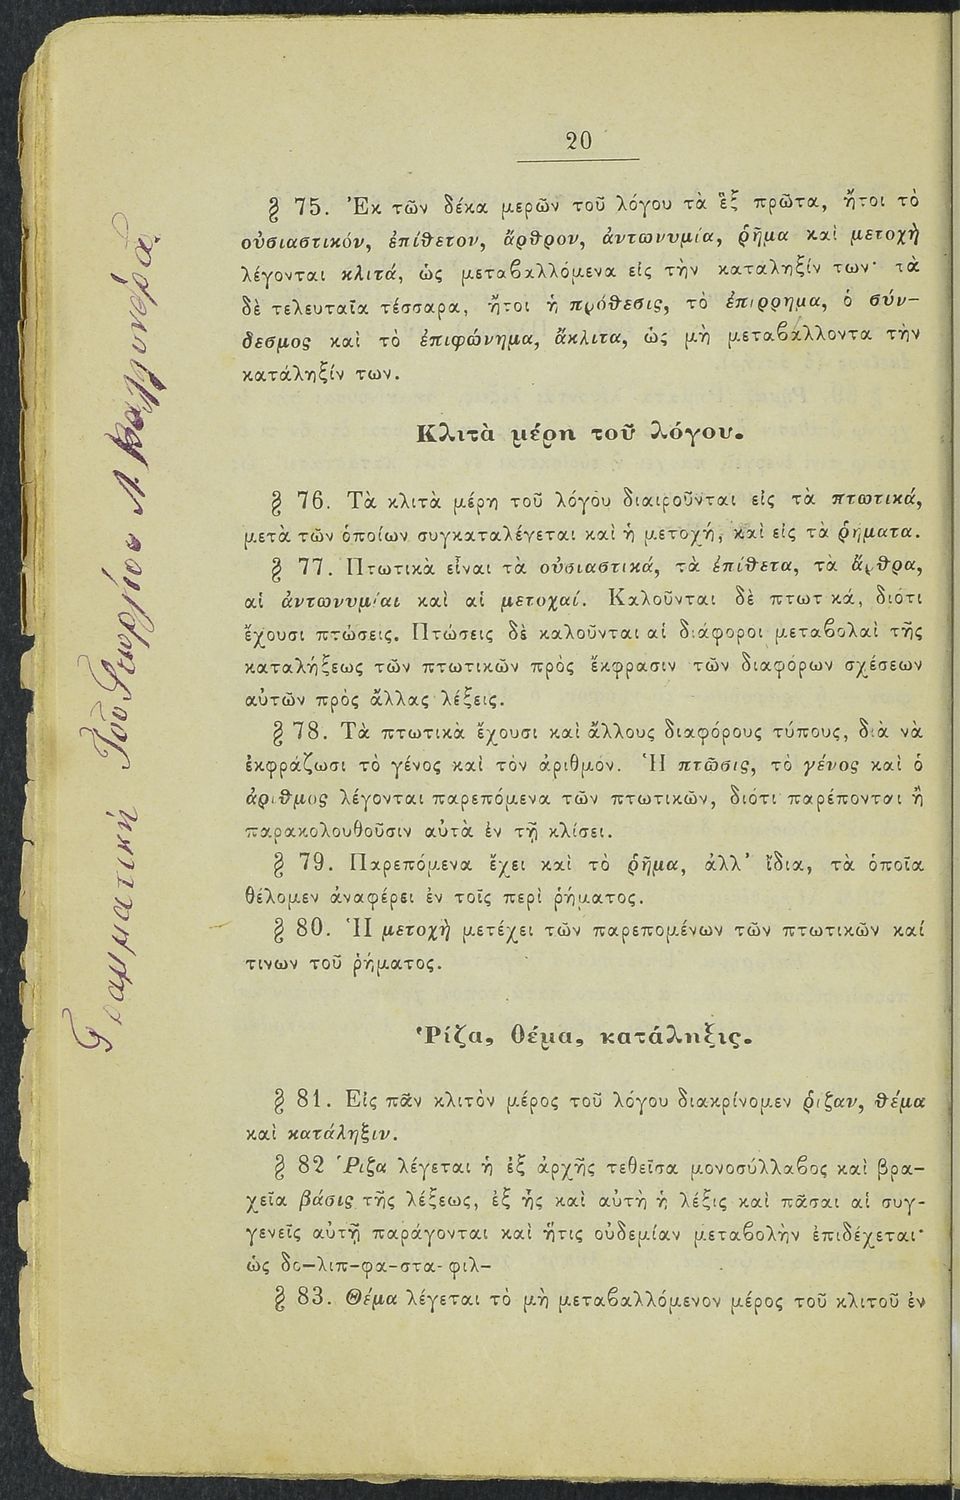 20
§ 75. Ἐκ τῶν δέκα μερῶν τοῦ λόγου τὰ ἓξ πρῶτα, ἤτοι τὸ
οὐσιαστικόν, ἐπίθετον, ἄρθρον, ἀντωνυμία, ῥῆμα καὶ μετοχὴ
λέγονται κλιτά, ὡς μεταβαλλόμενα εἰς τὴν καταληξίν των· τὰ
δὲ τελευταῖα τέσσαρα, ἤτοι ἡ πρόθεσις, τὸ ἐπιρρημα, ὁ σύν-
δεσμος καὶ τὸ ἐπιφώνημα, ἄκλιτα, ὡς μὴ μεταβάλλοντα τὴν
κατάληξίν των.
Κλιτὰ μέρη τοῦ λόγου.
§ 76. Τὰ κλιτὰ μέρη τοῦ λόγου διαιροῦνται εἰς τὰ πτωτικά,
μετὰ τῶν ὁποίων συγκαταλέγεται καὶ ἡ μετοχή, καὶ εἰς τὰ ῥήματα.
§ 77. Πτωτικὰ εἶναι τὰ οὐσιαστικά, τὰ ἐπίθετα, τὰ ἄρθρα,
αἱ ἀντωνυμίαι καὶ αἱ μετοχαί. Καλοῦνται δὲ πτωτ κά, διότι
ἔχουσι πτώσεις. Πτώσεις δὲ καλοῦνται αἱ διάφοροι μεταβολαὶ τῆς
καταλήξεως τῶν πτωτικῶν πρὸς ἔκφρασιν τῶν διαφόρων σχέσεων
αὐτῶν πρὸς ἄλλας λέξεις.
§ 78. Τὰ πτωτικὰ ἔχουσι καὶ ἄλλους διαφόρους τύπους, διὰ νὰ
ἐκφράζωσι τὸ γένος καὶ τὸν ἀριθμόν. Ἡ πτῶσις, τὸ γένος καὶ ὁ
ἀριθμος λέγονται παρεπόμενα τῶν πτωτικῶν, διότι παρέπονται ἢ
παρακολουθοῦσιν αὐτὰ ἐν τῇ κλίσει.
§ 79. Παρεπόμενα ἔχει καὶ τὸ ῥῆμα, ἀλλ' ἴδια, τὰ ὁποῖα
θέλομεν ἀναφέρει ἐν τοῖς περὶ ῥήματος.
§ 80. Ἡ μετοχὴ μετέχει τῶν παρεπομένων τῶν πτωτικῶν καί
τινων τοῦ ῥήματος.
Ῥίζα, θέμα, κατάληξις.
§ 81. Εἰς πᾶν κλιτὸν μέρος τοῦ λόγου διακρίνομεν ῥίζαν, θέμα
καὶ κατάληξιν.
§ 82 Ῥιζα λέγεται ἡ ἐξ ἀρχῆς τεθεῖσα μονοσύλλαβος καὶ βρα-
χεῖα βάσις τῆς λέξεως, ἐξ ἧς καὶ αὐτὴ ἡ λέξις καὶ πᾶσαι αἱ συγ-
γενεῖς αὐτῇ παράγονται καὶ ἥτις οὐδεμίαν μεταβολὴν ἐπιδέχεται·
ὡς δο-λιπ-φα-στα-φιλ-
§ 83. Θέμα λέγεται τὸ μὴ μεταβαλλόμενον μέρος τοῦ κλιτοῦ ἐν
Γραμματικὴ Τοῦ Γεωργίου Λ.